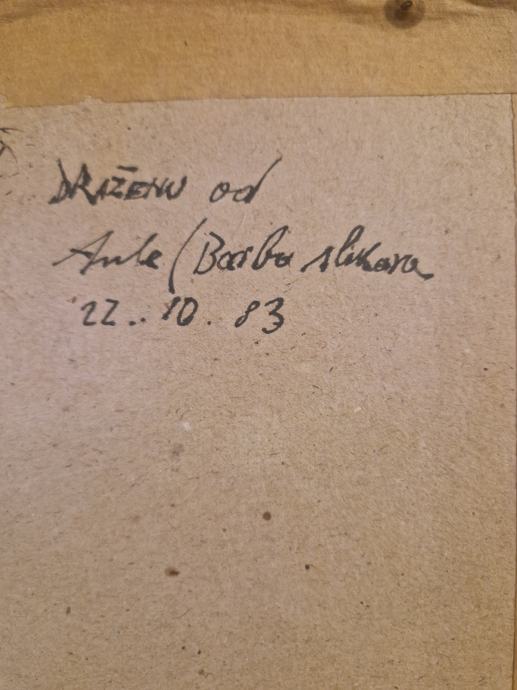 DRAŽENU od
Ante (Barba slikara
22.. 10. 83